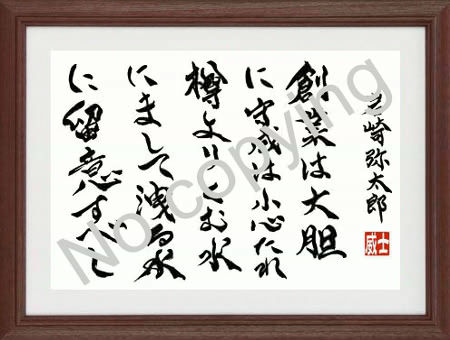 岩崎弥太郎
士威
創業は大胆
に守成は小心たれ
樽よりくむ水
にまして洩る水
に留意すべし
No copying